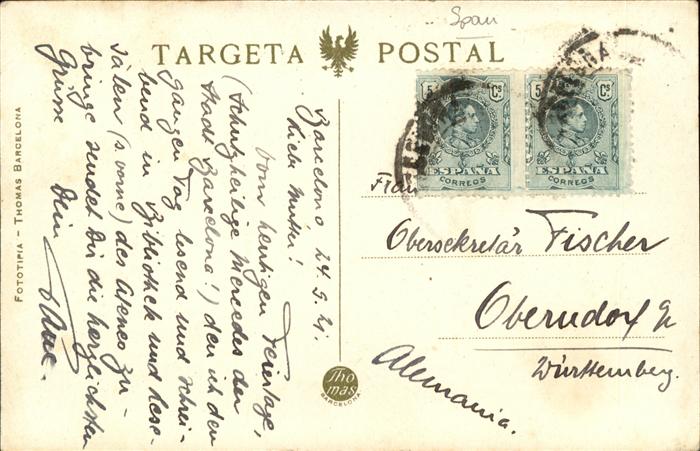 Span
TARGETA POSTAL
Barcelona 24. 9. 21.
Liebe Mutter!
Vom heutigen Feiertage,
(Schutzheilige Mercedes der
Stadt Barcelona!) den ich den
ganzen Tag lesend und schrei-
bend in Bibliothek und Lese-
sälen (s. vorne) des Ateneo zu-
bringe sendet Dir die herzlichsten
Grüsse Dein
5 Cs
ESPAÑA
CORREOS
5 Cs
ESPAÑA
CORREOS
Frau
Obersekretär Fischer
Oberndorf a/N
Württemberg.
Alemania.
Thomas
BARCELONA
FOTOTIPIA – THOMAS BARCELONA